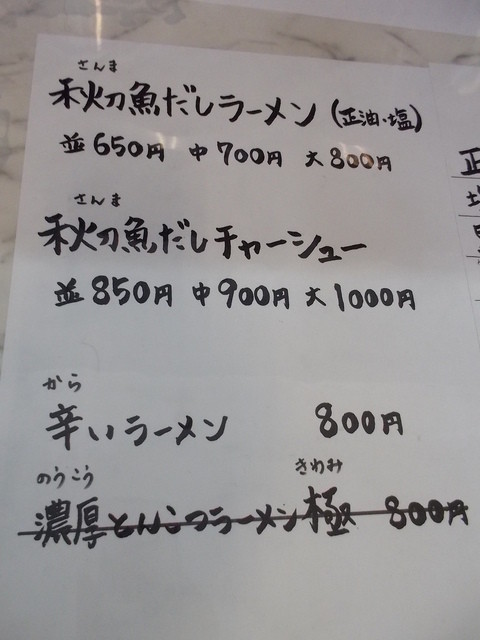 さんま
秋刀魚だしラーメン(正油・塩)
並650円 中700円 大800円
さんま
秋刀魚だしチャーシュー
並850円 中900円 大1000円
から
辛いラーメン 800円
のうこう きわみ
濃厚とんこつラーメン極 800円
正